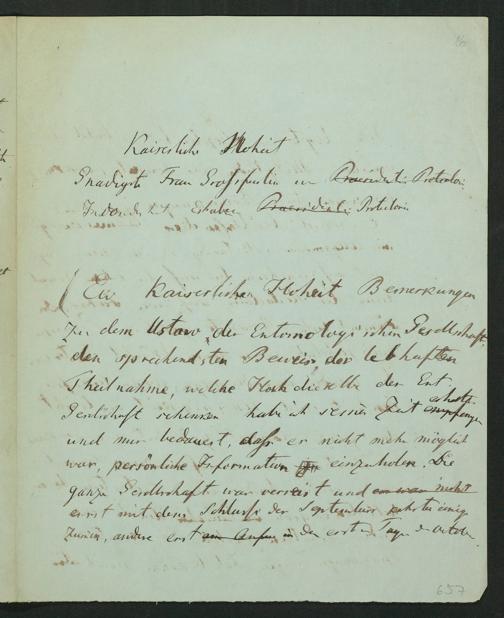 Kaiserliche Hoheit
Gnädigste Frau Grossfürstin Praesidentin Protectorin
Erhabene Praesidentin Protectorin
Ew Kaiserlichen Hoheit Bemerkungen
Zu dem Ustaw der Entomologischen Gesellschaft,
den sprechendsten Beweis der lebhaften
Theilnahme, welche Hochdieselbe der Ent
Gesellschaft schenken habe ich seiner Zeit empfangen erhalten
und nur bedauert, dass er nicht mehr möglich
war, persönliche Information einzuholen. Die
ganze Gesellschaft war verreist und es war nicht
erst mit dem Schluss der September kehrten einige
zurück, andere erst am Anfan in den ersten Tagen d October.
657